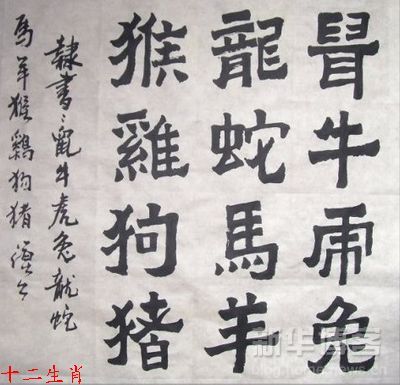 鼠牛虎兔
龍蛇馬羊
猴雞狗猪
隸書:鼠牛虎兔龍蛇
馬羊猴鷄狗猪
十二生肖
新华博客